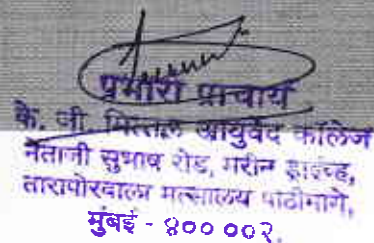 प्रभारी प्राचार्य
के. जी. मित्तल आयुर्वेद कॉलेज
नेताजी सुभाष रोड, मरीन ड्राइव्ह,
तारापोरवाला मत्सालय पाठीमागे,
मुंबई - ४०० ००२.